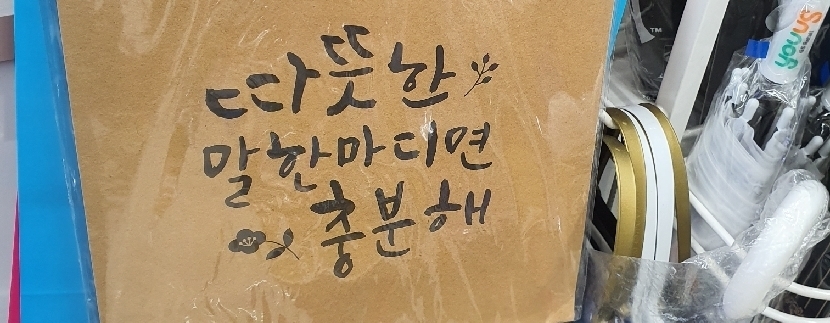 따뜻한
말한마디면
충분해
younuS
TM